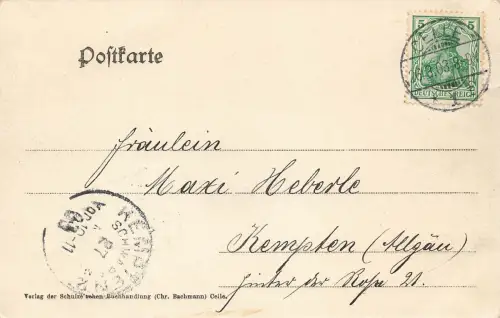 Postkarte
5 5
CELLE
DEUTSCHES REICH
Fräulein
Maxi Heberle
Kempten (Allgäu)
hinter der Rose 21.
KEMPTEN
Verlag der Schulze'schen Buchhandlung (Chr. Bachmann) Celle.